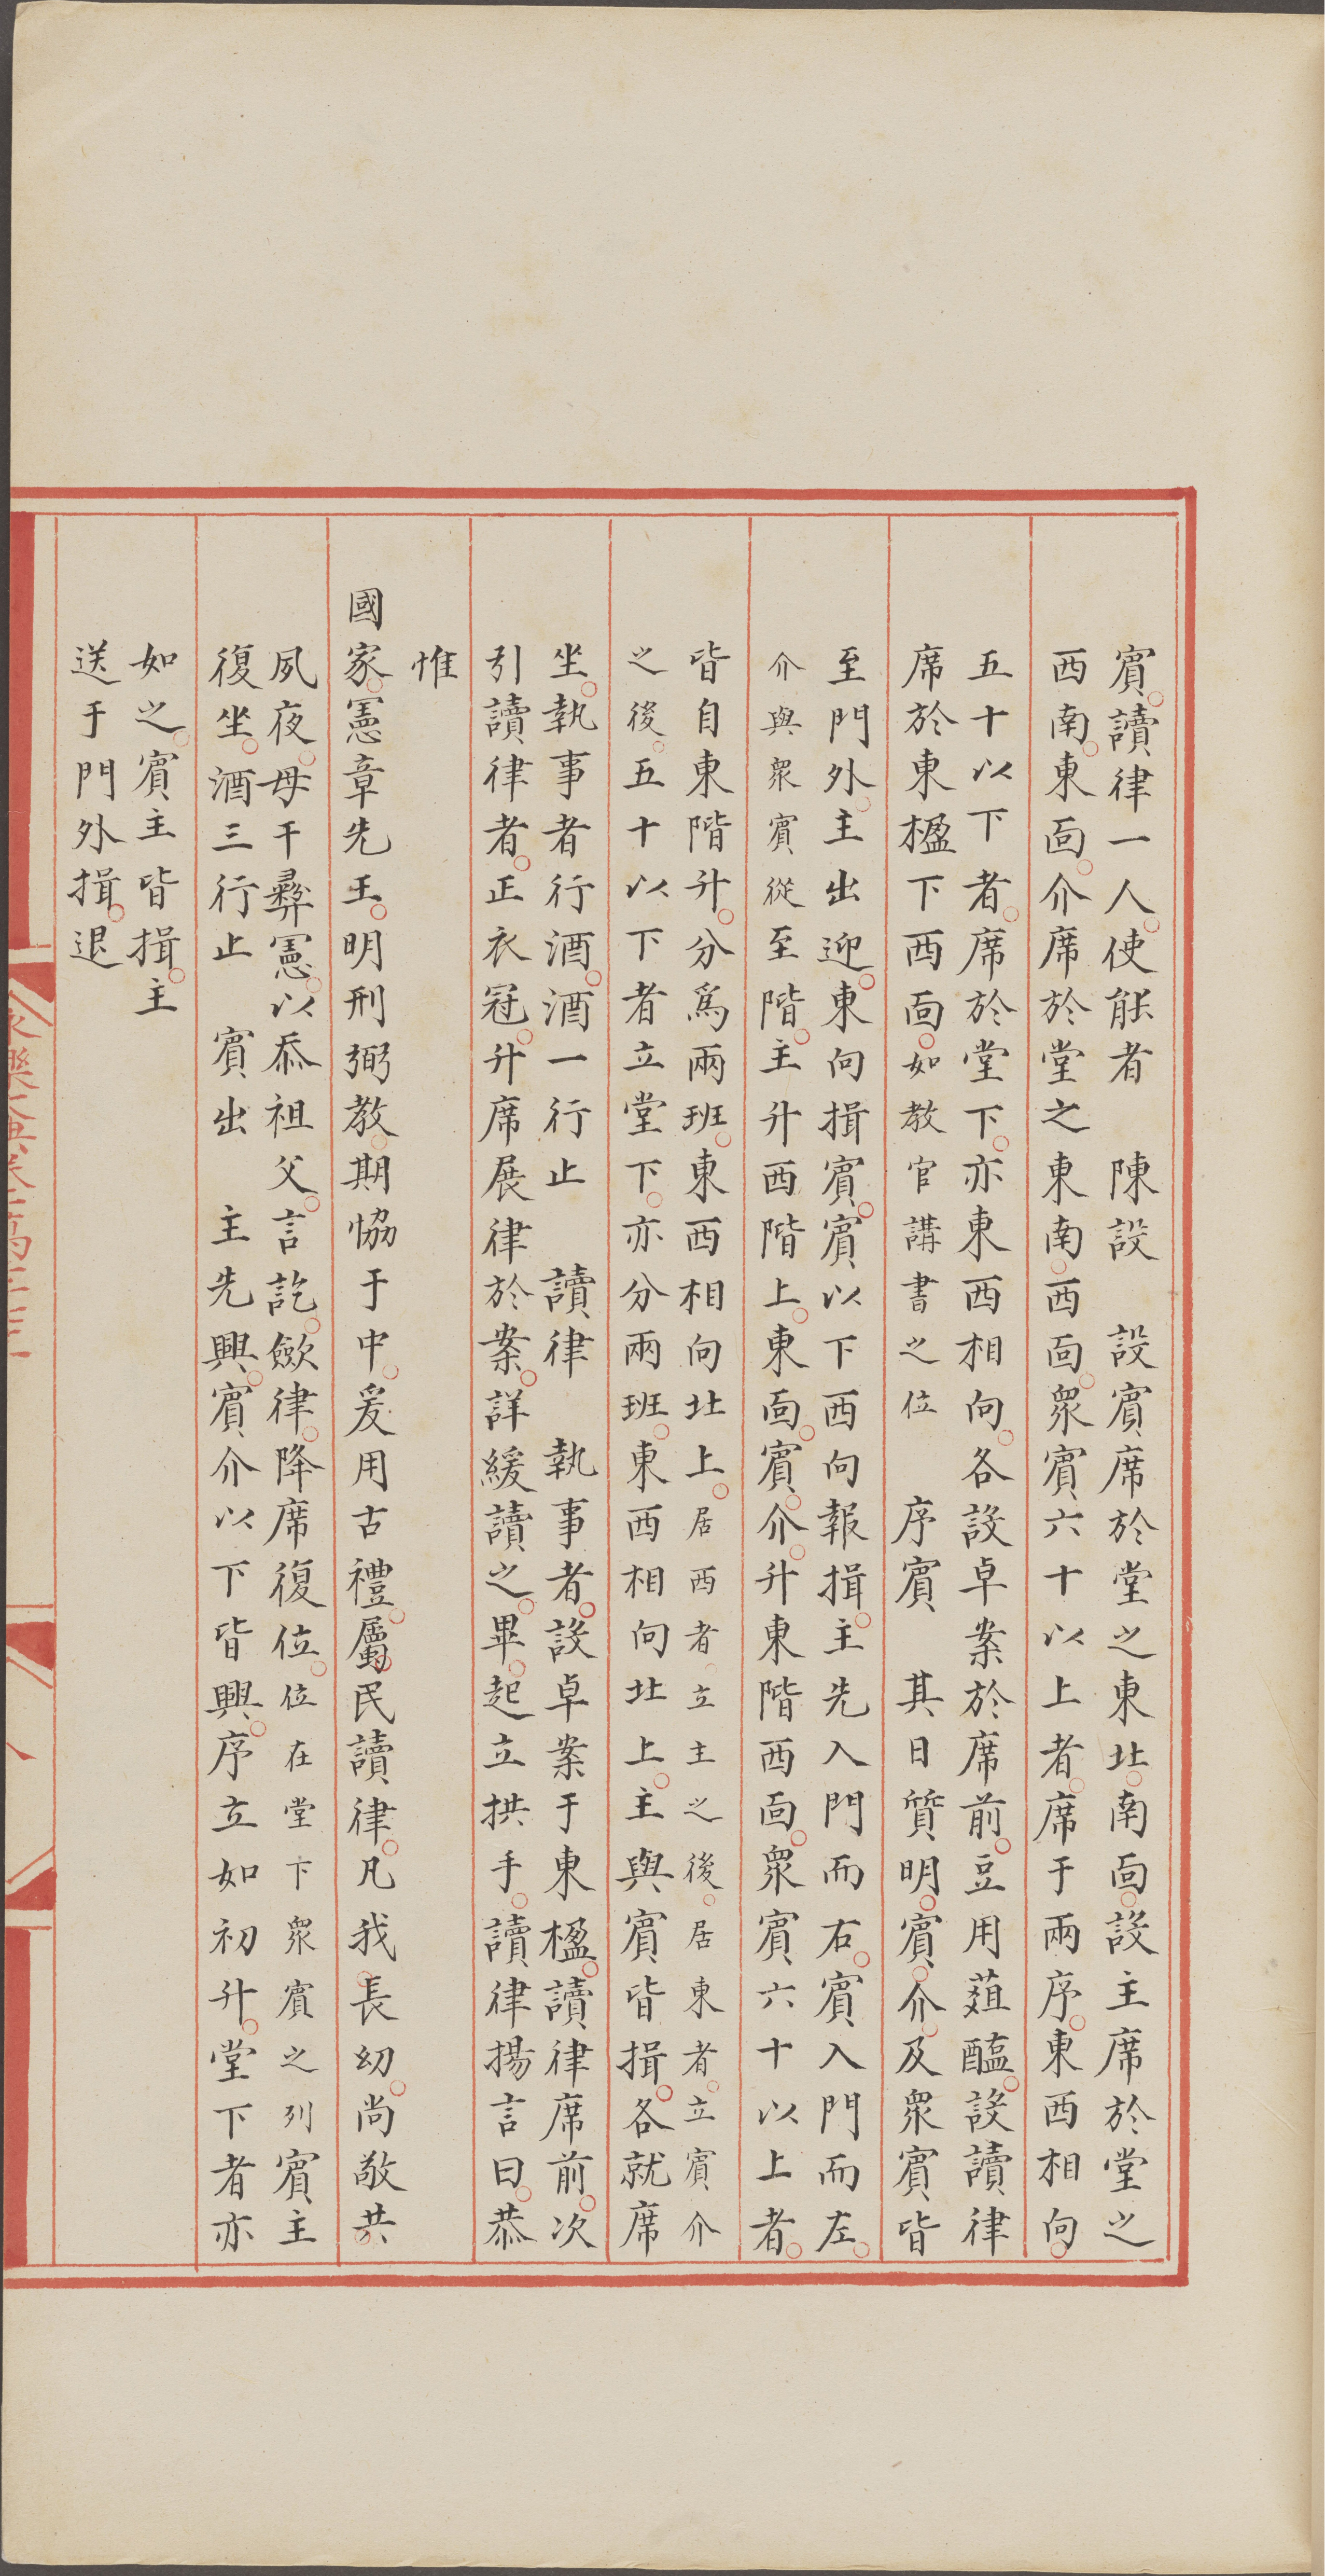 賓讀律一人使能者　陳設　設賓席於堂之東北南面設主席於堂之
西南東面介席於堂之東南西面衆賓六十以上者席于兩序東西相向
五十以下者席於堂下亦東西相向各設卓案於席前豆用葅醢設讀律
席於東楹下西面如教官講書之位　序賓　其日質明賓介及衆賓皆
至門外主出迎東向揖賓賓以下西向報揖主先入門而右賓入門而左
介與衆賓從至階主升西階上東面賓介升東階西面衆賓六十以上者
皆自東階升分爲兩班東西相向北上居西者立主之後居東者立賓介
之後五十以下者立堂下亦分兩班東西相向北上主與賓皆揖各就席
坐執事者行酒酒一行止　讀律　執事者設卓案于東楹讀律席前次
引讀律者正衣冠升席展律於案詳緩讀之畢起立拱手讀律揚言曰恭
惟
國家憲章先王明刑弼教期恊于中爰用古禮屬民讀律凡我長幼尚敬共
夙夜毋干彝憲以忝祖父言訖斂律降席復位位在堂下衆賓之列賓主
復坐酒三行止　賓出　主先興賓介以下皆興序立如初升堂下者亦
如之賓主皆揖主
送于門外揖退